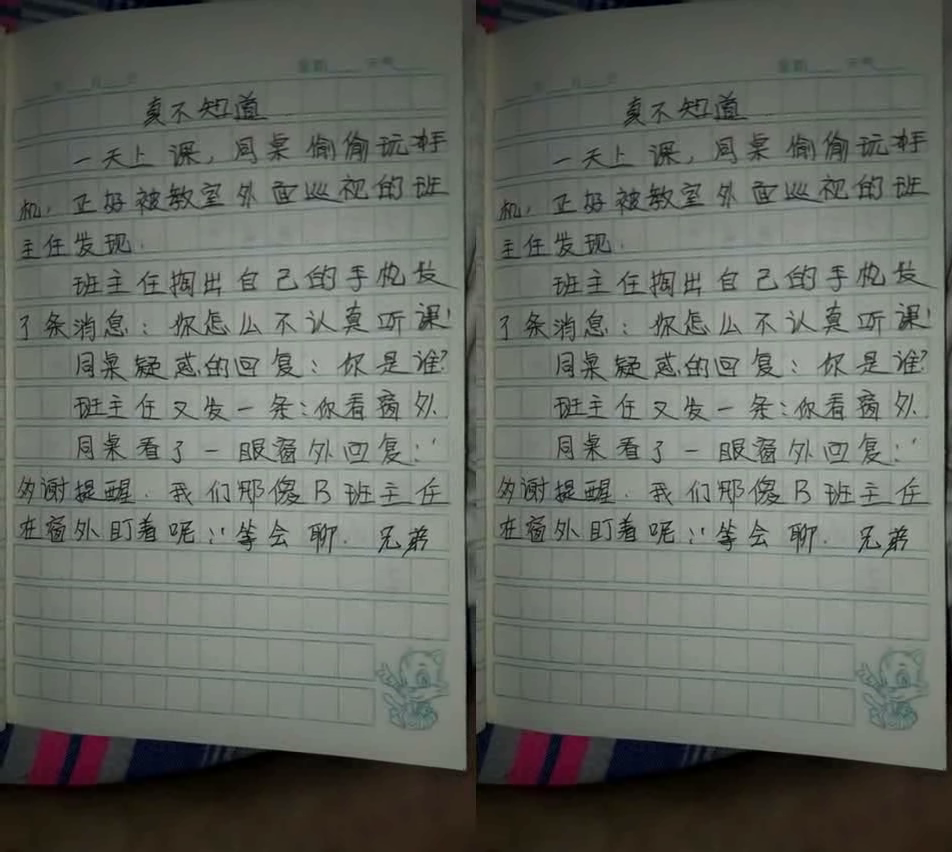 真不知道
一天上课，同桌偷偷玩手
机，正好被教室外面巡视的班
主任发现.
班主任掏出自己的手机发
了条消息：你怎么不认真听课！
同桌疑惑的回复：你是谁？
班主任又发一条：你看窗外.
同桌看了一眼窗外回复：“
多谢提醒.我们那傻B班主任
在窗外盯着呢“等会聊.兄弟
真不知道
一天上课，同桌偷偷玩手
机，正好被教室外面巡视的班
主任发现.
班主任掏出自己的手机发
了条消息：你怎么不认真听课！
同桌疑惑的回复：你是谁？
班主任又发一条：你看窗外.
同桌看了一眼窗外回复：“
多谢提醒.我们那傻B班主任
在窗外盯着呢“等会聊.兄弟